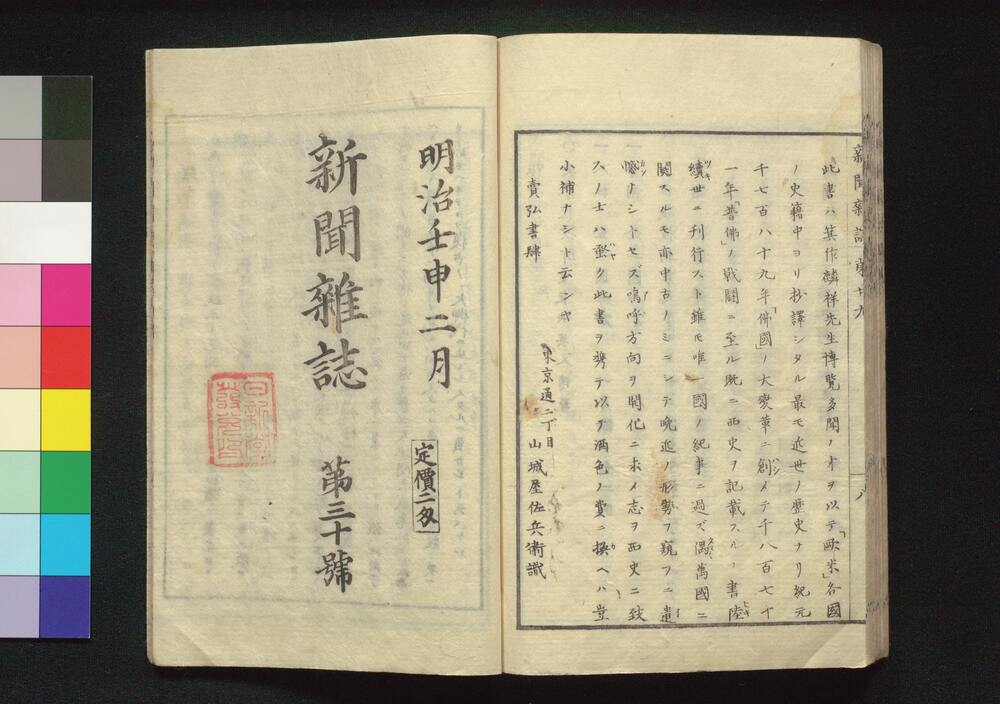 此書ハ箕作麟祥先生博覧多聞ノオヲ以テ「歐米」各國
ノ史籍中ヨリ抄譯シタル最モ近世ノ歴史ナリ紀元
千七百八十九年「佛國」ノ大變革ニ創メテ千八百七十
一年「普佛」ノ戰鬪ニ至ル既ニ西史ヲ記載スルノ書陸
續世ニ刊行スト雖モ唯一國ノ紀事ニ過ズ偶萬國ニ
関スルモ亦中古ノミニシテ晩近ノ形勢ヲ窺フニ遺
憾ナシトセズ嗚呼方向ヲ開化ニ求メ志ヲ西史ニ致
スノ士ハ蚤ク此書ヲ携テ以テ酒色ノ費ニ換ヘハ豈
小補ナシト云ンヤ
東京通二丁目
賣弘書肆 山城屋佐兵衞識
新聞雜誌 第廿九
八
明治壬申二月
定價二匁
新聞雜誌 第三十號
日新堂